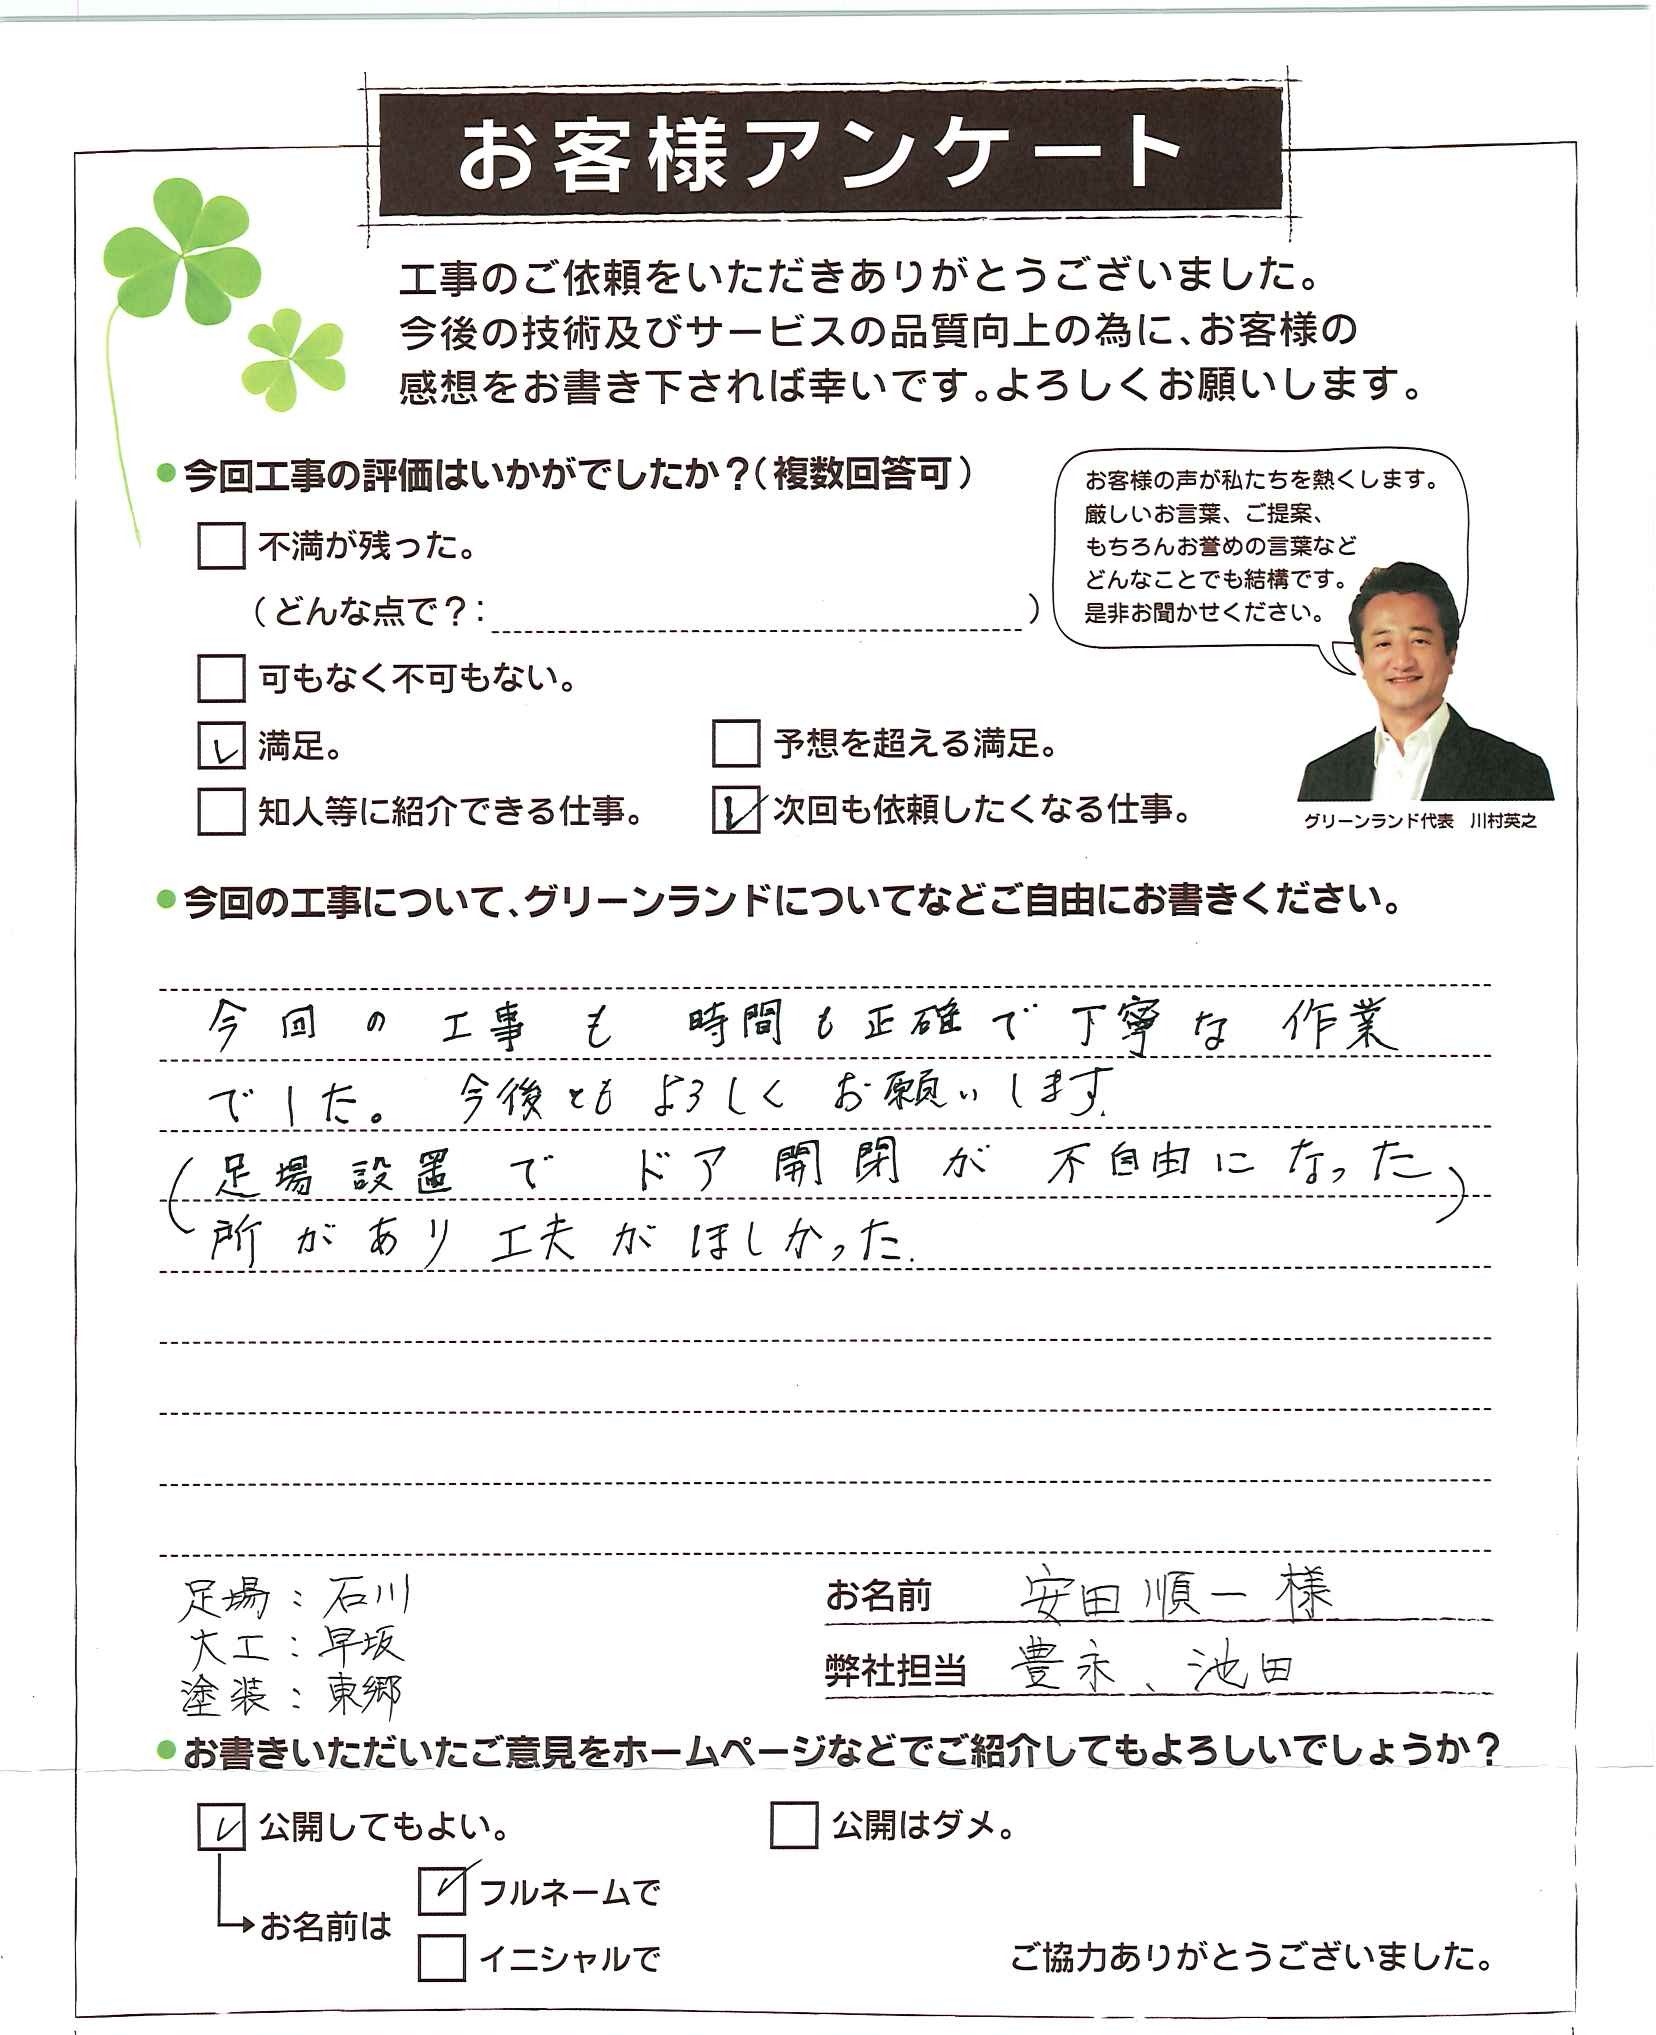 お客様アンケート
工事のご依頼をいただきありがとうございました。
今後の技術及びサービスの品質向上の為に、お客様の
感想をお書き下されば幸いです。よろしくお願いします。
●今回工事の評価はいかがでしたか？（複数回答可）
お客様の声が私たちを熱くします。
厳しいお言葉、ご提案、
もちろんお誉めの言葉など
どんなことでも結構です。
是非お聞かせください。
不満が残った。
（どんな点で？：　）
可もなく不可もない。
満足。
予想を超える満足。
知人等に紹介できる仕事。
次回も依頼したくなる仕事。
グリーンランド代表　川村英之
●今回の工事について、グリーンランドについてなどご自由にお書きください。
今回の工事も 時間も正確で丁寧な 作業
でした。 今後ともよろしく お願いします.
(足場設置で ドア開閉が 不自由になった)
所があり 工夫がほしかった.
足場：石川
大工：早坂
塗装：東郷
お名前　安田順一様
弊社担当　豊永、池田
●お書きいただいたご意見をホームページなどでご紹介してもよろしいでしょうか？
公開してもよい。
公開はダメ。
お名前は
フルネームで
イニシャルで
ご協力ありがとうございました。